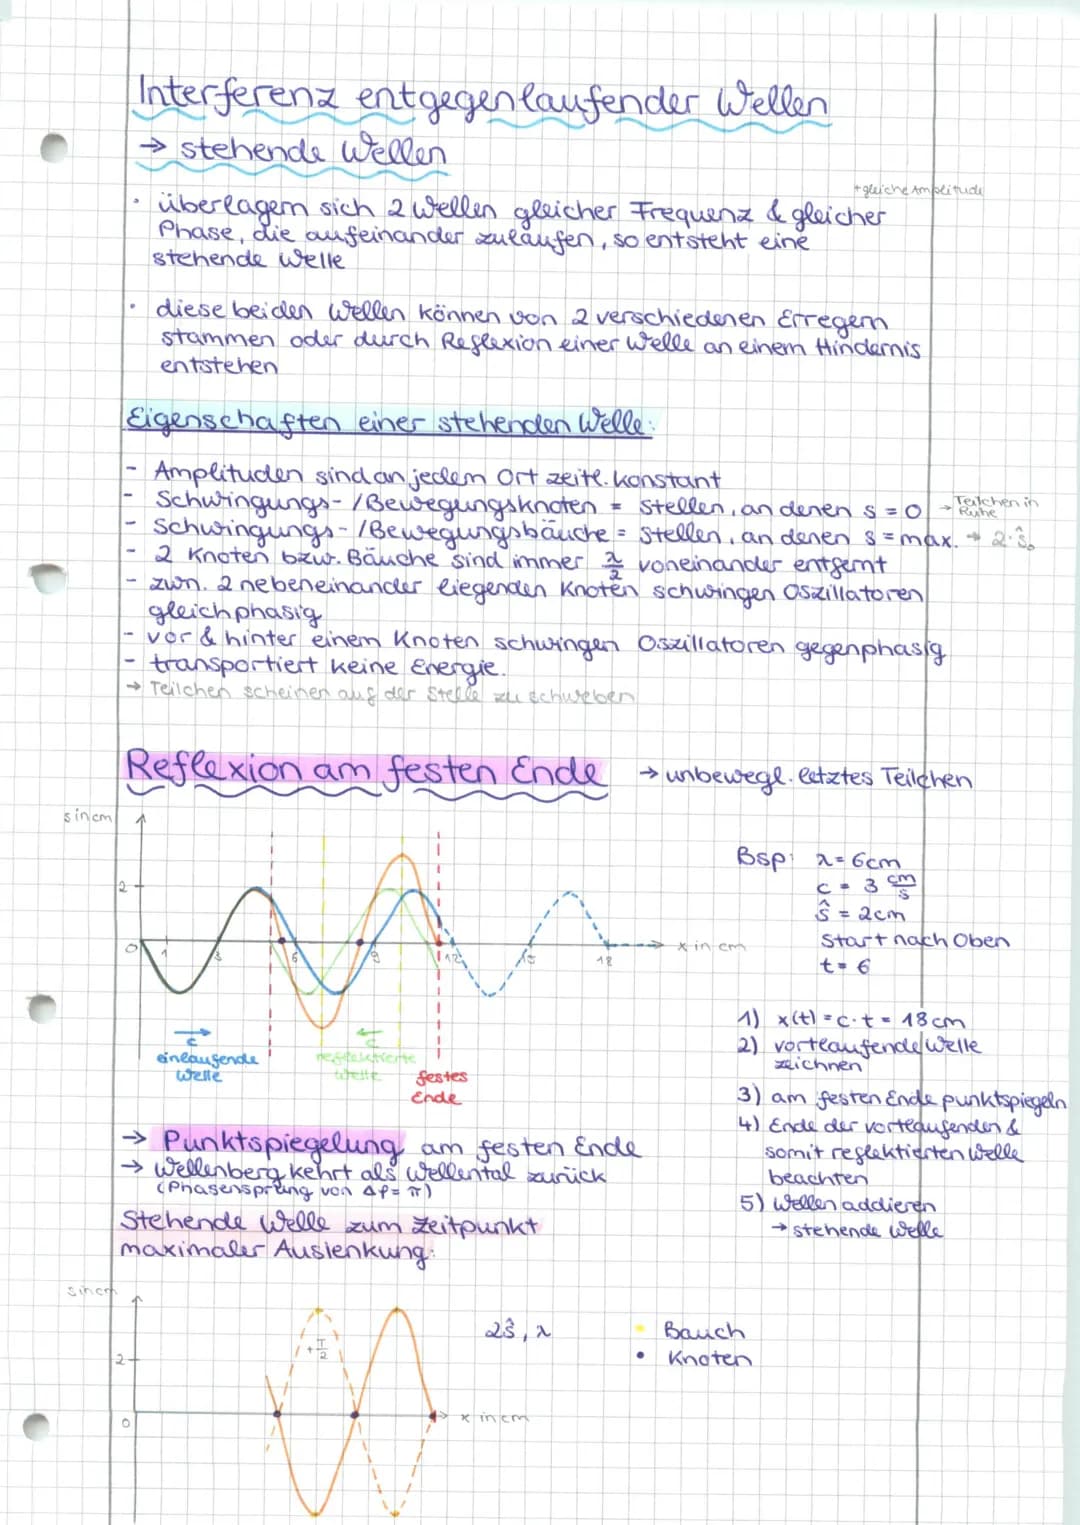 Interferenz entgegenlaufender Wellen
→ stehende Wellen
+gleiche Amplitude
• überlagern sich 2 Wellen gleicher Frequenz & gleicher
Phase, die aufeinander zulaufen, so entsteht eine
stehende Welle
• diese beiden Wellen können von 2 verschiedenen Erregern
stammen oder durch Reflexion einer Welle an einem Hindernis
entstehen
Eigenschaften einer stehenden Welle:
- Amplituden sind an jedem Ort zeitl. konstant
- Schwingungs-/Bewegungsknoten = Stellen, an denen s = 0 → Teilchen in Ruhe
- Schwingungs-/Bewegungsbäuche = Stellen, an denen s = max. → 2·ŝ
- 2 Knoten bzw. Bäuche sind immer λ/2 voneinander entfernt
- zwn. 2 nebeneinander liegenden Knoten schwingen Oszillatoren
gleichphasig
- vor & hinter einem Knoten schwingen Oszillatoren gegenphasig
- transportiert keine Energie.
→ Teilchen scheinen auf der Stelle zu schweben
Reflexion am festen Ende → unbewegl. letztes Teilchen
s in cm
2
0
1
3
6
9
12
15
18
x in cm
c
einlaufende
Welle
c
reflektierte
Welle
festes
Ende
Bsp: λ = 6cm
c = 3 cm/s
ŝ = 2cm
Start nach Oben
t = 6
1) x(t) = c·t = 18cm
2) vorlaufende Welle
zeichnen
3) am festen Ende punktspiegeln
4) Ende der vorlaufenden &
somit reflektierten Welle
beachten
5) Wellen addieren
→ stehende Welle
→ Punktspiegelung am festen Ende
→ Wellenberg kehrt als Wellental zurück
(Phasensprung von Δφ = π)
Stehende Welle zum Zeitpunkt
maximaler Auslenkung:
s in cm
2
0
+T/2
x in cm
2ŝ, λ
Bauch
• Knoten